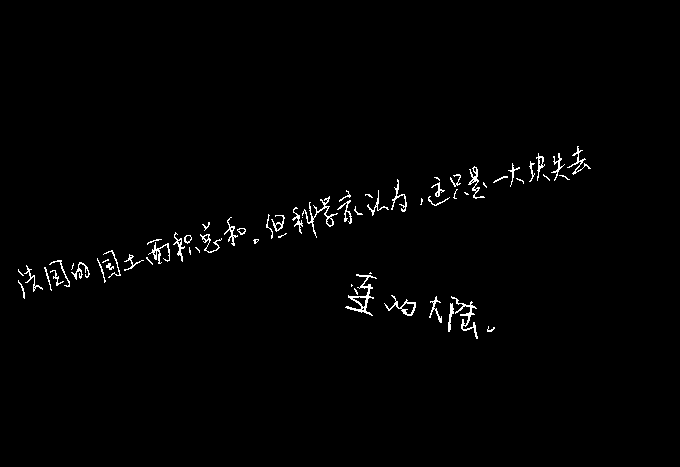 法国的国土面积总和。但科学家认为，这只是一大块失去
连的大陆。